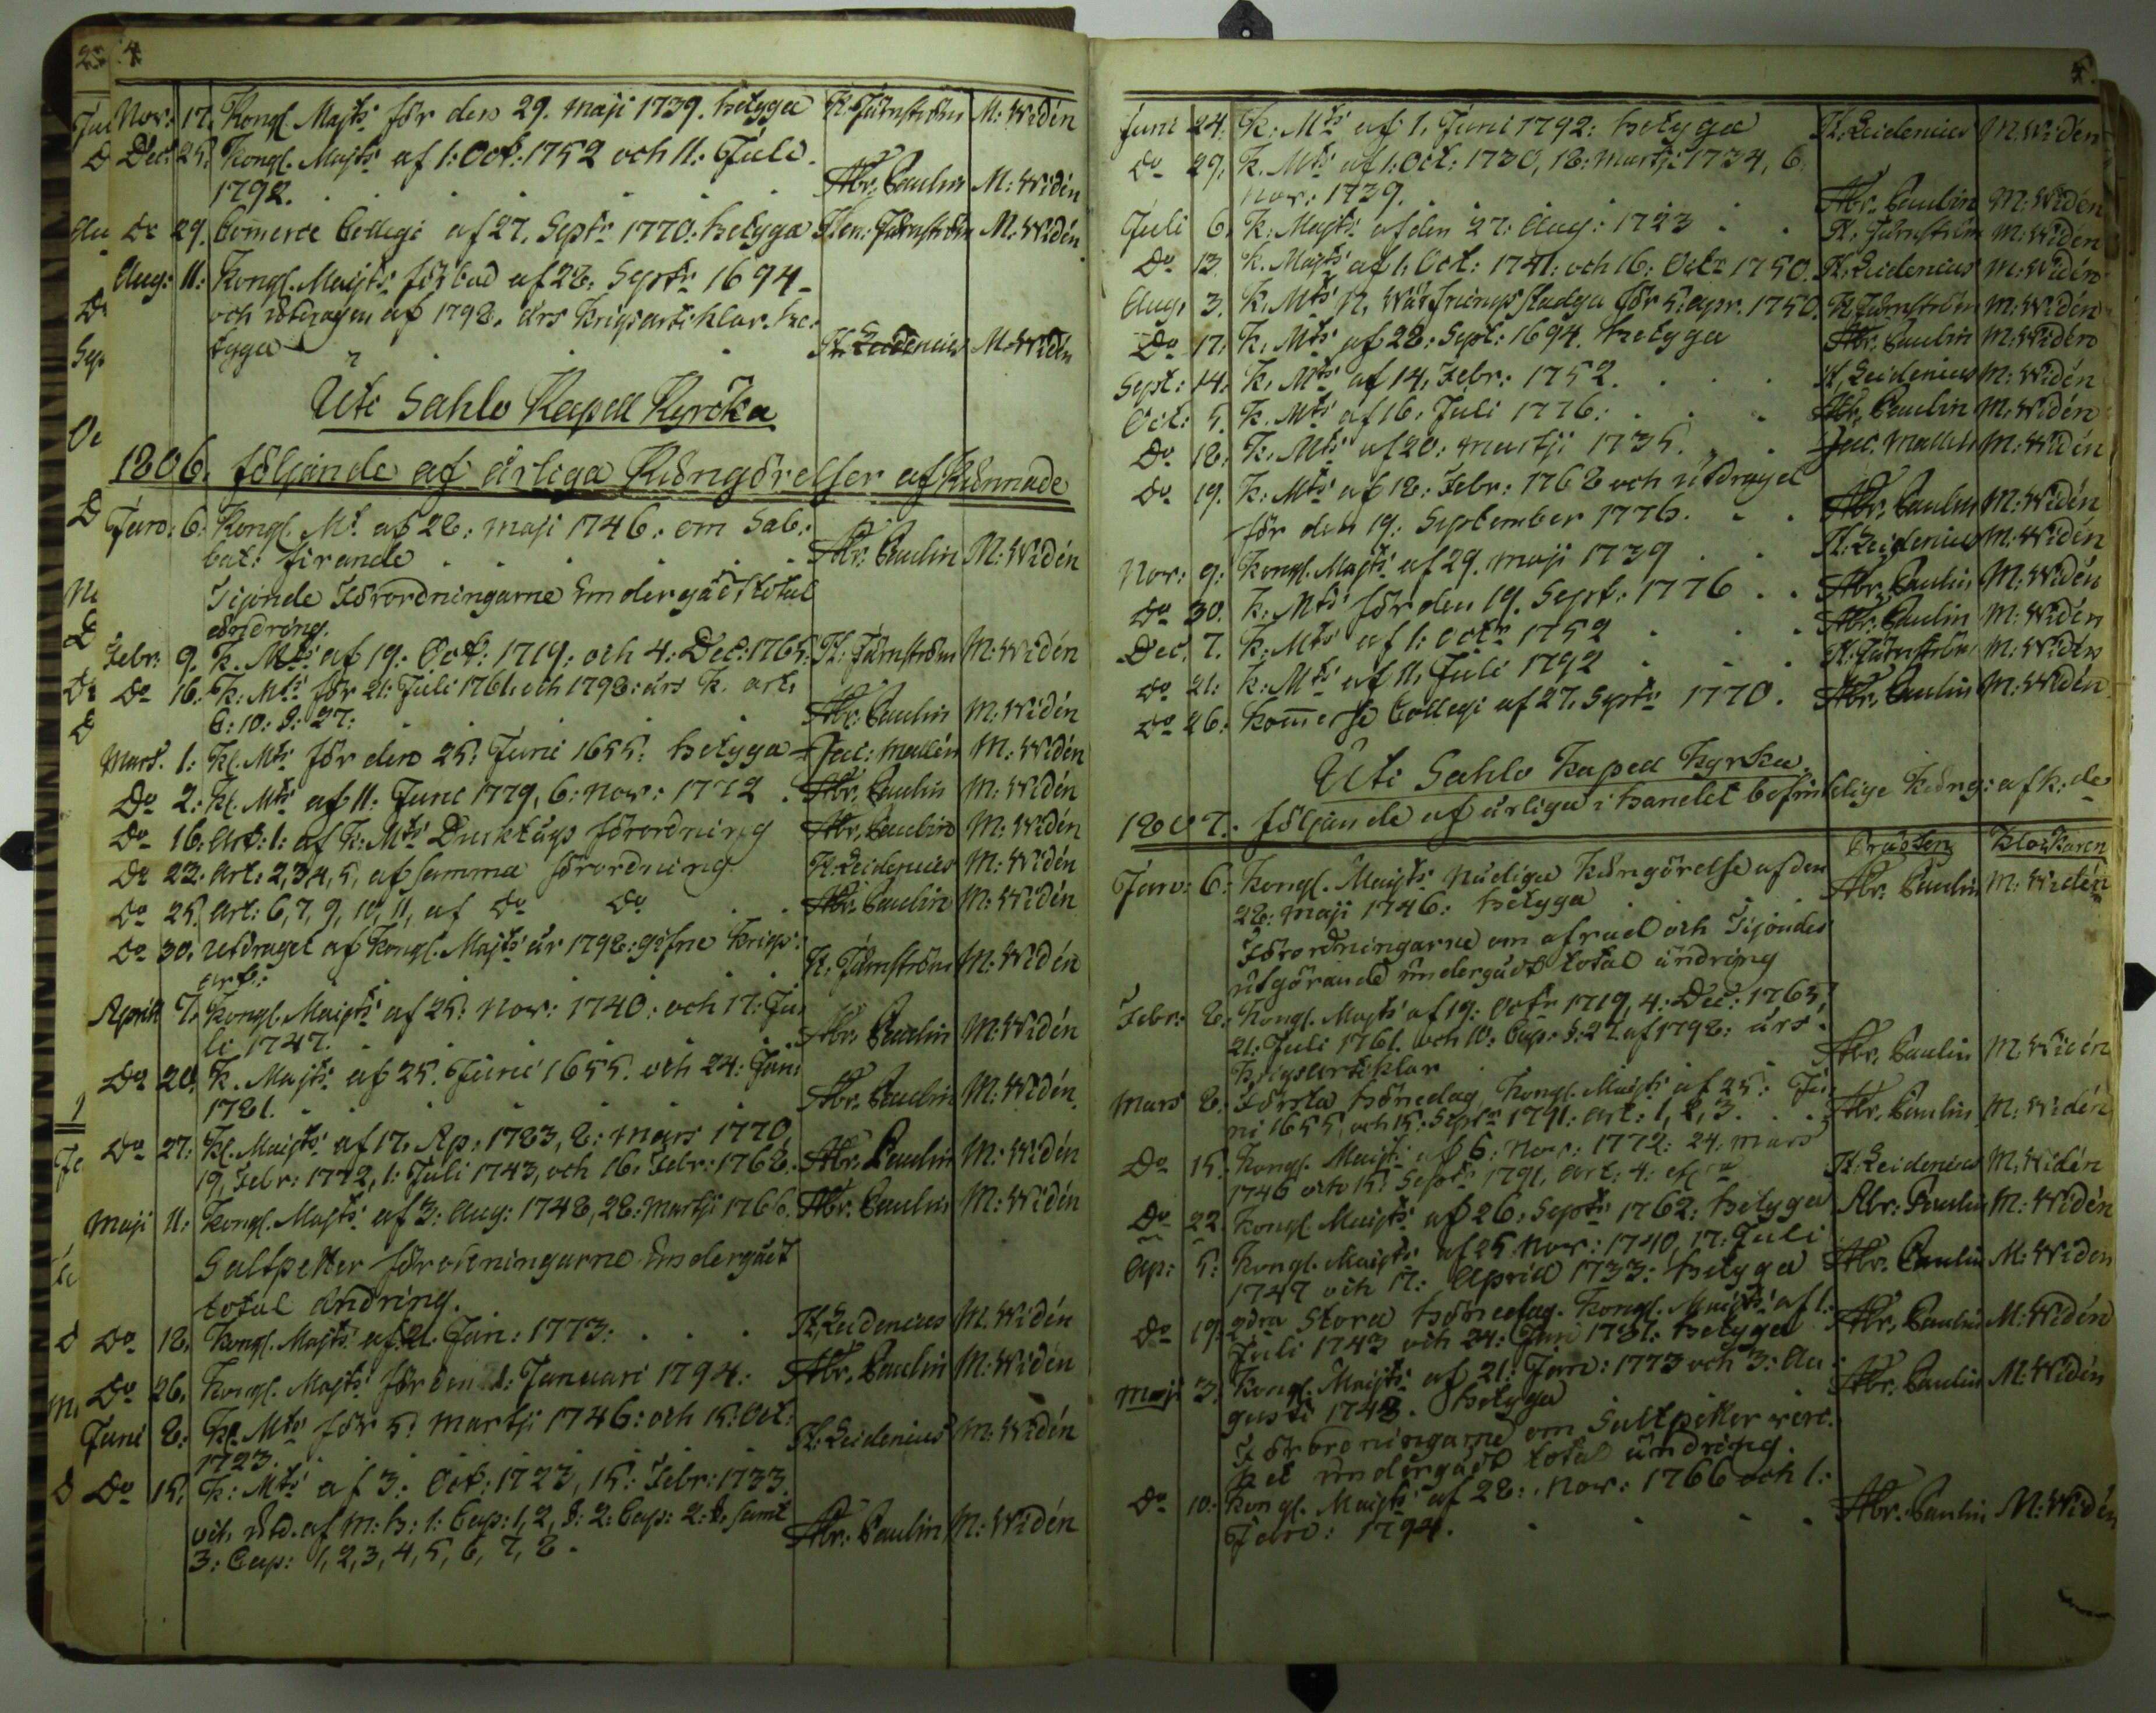 4
Nov: 17. Kongl. Majts för den 29. Maji 1739. betyga H. Järnström M: Widén
Dec: 25. Kongl. Majts af 1: Oct: 1752 och 11: Juli
1792. Abr. Paulin M: Widén
Do 29. Comerce Collegi af 27. Septr 1770. betyga Hen. Järnström M: Widén
Aug: 11: Kongl. Majts förbud af 28. Septr 1694
och utdragen af 1798. års Krigsartiklar. be:
tyga H. Leidenius M: Widén
Uti Sahlo Kapell Kyrka
1806. följande af årliga Kungörelser afkunnade
Janv: 6: Kongl. Mt af 28: maji 1746: om Sab:
bat: firande Abr. Paulin M: Widén
Tijonde Förordningarne undergådt total
ändring.
Febr: 9. K. Mts af 19: Oct: 1719: och 4: Dec: 1765: H: Järnström M: Widén
Do 16: K: Mts för 21: Juli 1761. och 1798: års K. art:
6: 10: §: 27: Abr. Paulin M: Widén
Mart. 1: Kl. Mts för den 25: Juni 1655: betyga Jac: Mallén M: Widén
Do 2: Kl. Mts af 11: Juni 1779, 6: Nov: 1772 Abr. Paulin M: Widén
Do 16: Art: 1: af K: Mts förordning Abr. Paulin M: Widén
Do 22. Art: 2, 3, 4, 5, af samma förordning H: Leidenius M: Widén
Do 25. Art: 6, 7, 9, 10, 11, af Do Do Abr. Paulin M: Widén
Do 30. Utdraget af Kongl. Majts år 1798: gifne Krigs:
art: H. Järnström M: Widén
Aprill 7. Kongl. Majts af 25: Nov: 1740: och 17: Ju:
li 1747. Abr. Paulin M: Widén
Do 20. K. Majts af 25. Juni 1655. och 24: Jan:
1781. Abr. Paulin M: Widén
Do 27: Kl. Majts af 17. Ap: 1783, 8: Mars 1770,
19. Febr: 1772, 1: Juli 1743, och 16: Febr: 1768: Abr. Paulin M: Widén
Maji 11: Kongl. Majts af 3: Aug: 1748, 28: Martji 1766. Abr. Paulin M: Widén
Saltpetter förordningarne undergådt
total ändring.
Do 18. Kongl. Majts af 21. Jan: 1773: H. Leidenius M. Widén
Do 26. Kongl. Majts för den 21: Januari 1794: Abr. Paulin M: Widén
Juni 8: Kl. Mts för 5: Martji 1746: och 15: Oct:
1723. H: Leidenius M: Widén
Do 15. K: Mts af 3: Oct: 1723, 15: Febr: 1733.
och utd. af M: B: 1: Cap: 1, 2, §: 2: Cap: 2: §. samt
3: Cap: 1, 2, 3, 4, 5, 6, 7, 8. Abr: Paulin M: Widén
5.
Juni 24: K: Mts af 1. Juni 1792: betyga H: Leidenius M: Widén
Do 29: K. Mts af 1: Oct: 1730, 18: Martji: 1734, 6:
Nov: 1739. Abr. Paulin M: Widén
Juli 6. K. Majts af den 27: Aug: 1723 H: Järnström M: Widén
Do 13. K. Majts af 1: Oct: 1741: och 16: Octr 1750. H: Leidenius M: Widén
Aug: 3. K. Mts N. Wärfnings Stadga för 5: apr. 1750. H. Järnström M: Widén
Do 17. K. Mts af 28: Sept: 1694. betyga Abr. Paulin M: Widén
Sept: 14: K. Mts af 14. Febr: 1752. H. Leidenius M: Widén
Oct: 5. K. Mts af 16. Juli 1776: Abr. Paulin M: Widén
Do 12. K. Mts af 20: Martji 1735. Jac. Mallén M: Widén
Do 19. K: Mts af 18: Febr: 1768 och utdraget
för den 19: September 1776. Abr. Paulin M: Widén
Nov: 9: Kongl. Majts af 29. maji 1739 H: Leidenius M: Widén
Do 30. K: Mts för den 19. Sept: 1776 Abr. Paulin M: Widén
Dec. 7. K: Mts af 1: Octr 1752 Abr. Paulin M: Widén
Do 21: K: Mts af 11. Juli 1792 H: Järnström M: Widén
Do 26: Komerse Collegi af 27. Septr 1770. Abr. Paulin M: Widén
Uti Sahlo Kapell Kyrka.
1807. följande af årliga i handel befintelige Kung: afk: de
Prästen Klockaren
Janv: 6: Kongl. Majts Nådiga Kungörelse af den
28: Maji 1746: betyga Abr. Paulin M: Widén
Förordningarne om afrad och Tijondes
utgörande undergådt total ändring
Febr: 8: Kongl. Majts af 19: Octr 1719, 4: Dec: 1765,
21: Juli 1761. och 10: Cap: §: 27. af 1798: års
Krigsartiklar Abr. Paulin M: Widén
Mars 8: Första Bönedag, Kongl. Majts af 25: Ju:
ni 1655, och 15: Septr 1791: Art: 1, 2, 3. Abr. Paulin M: Widén
Do 15: Kongl. Majts af 6: Nov: 1772: 24: Mars
1746 och 15: Septr 1791. Art: 4: H: Leidenius M: Widén
Do 22. Kongl. Majts af 26: Septr 1762: betyga Abr: Paulin M: Widén
Ap: 5: Kongl. Majts af 25 Nov: 1740, 17: Juli
1747 och 17: Aprill 1733: betyga Abr. Paulin M: Widén
Do 19: 2dra Stora Bönedag. Kongl. Majts af 1.
Juli 1743 och 24: Jani 1781: betyga Abr. Paulin M: Widén
Maji 3: Kongl. Majts af 21: Janv: 1773 och 3: Au
gusti 1748. betyga Abr. Paulin M: Widén
Förordningarne om Saltpetter
ket undergådt total ändring.
Do 10: Kongl. Majts af 28: Nov: 1766 och 1:
Janv: 1794. Abr. Paulin M: Widén